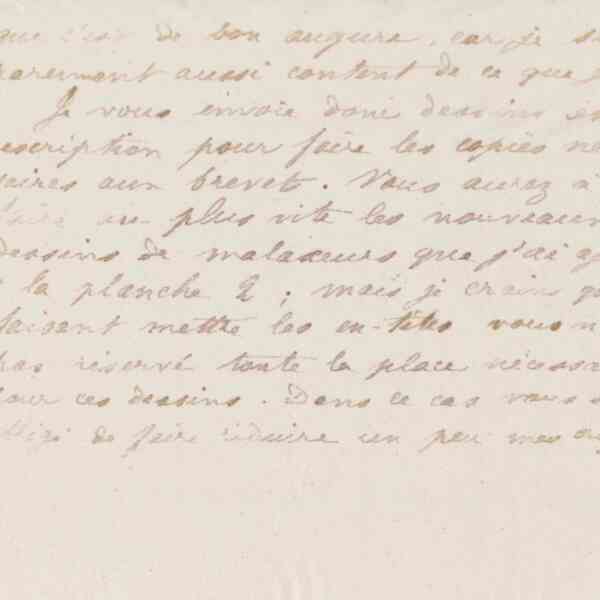 que c'est de bon augure, car je
rarement aussi content de ce que
Je vous envoie donc dessins
escription pour faire les copies
saires aux brevet. Vous aurez à
faire au plus vite les nouveaux
dessins de malaxeurs que j'ai
à la planche 2; mais je crains
faisant mettre les en-têtes vous
pas réservé toute la place nécess
pour ces dessins. Dans ce cas vous
de faire réduire un peu mes